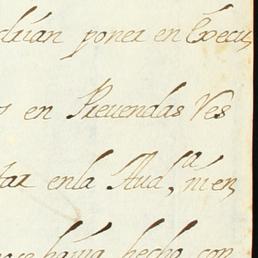 drían poner en Execu
en Preuendas Ves
tar enla Aud,ª ni en
hauia hecho con